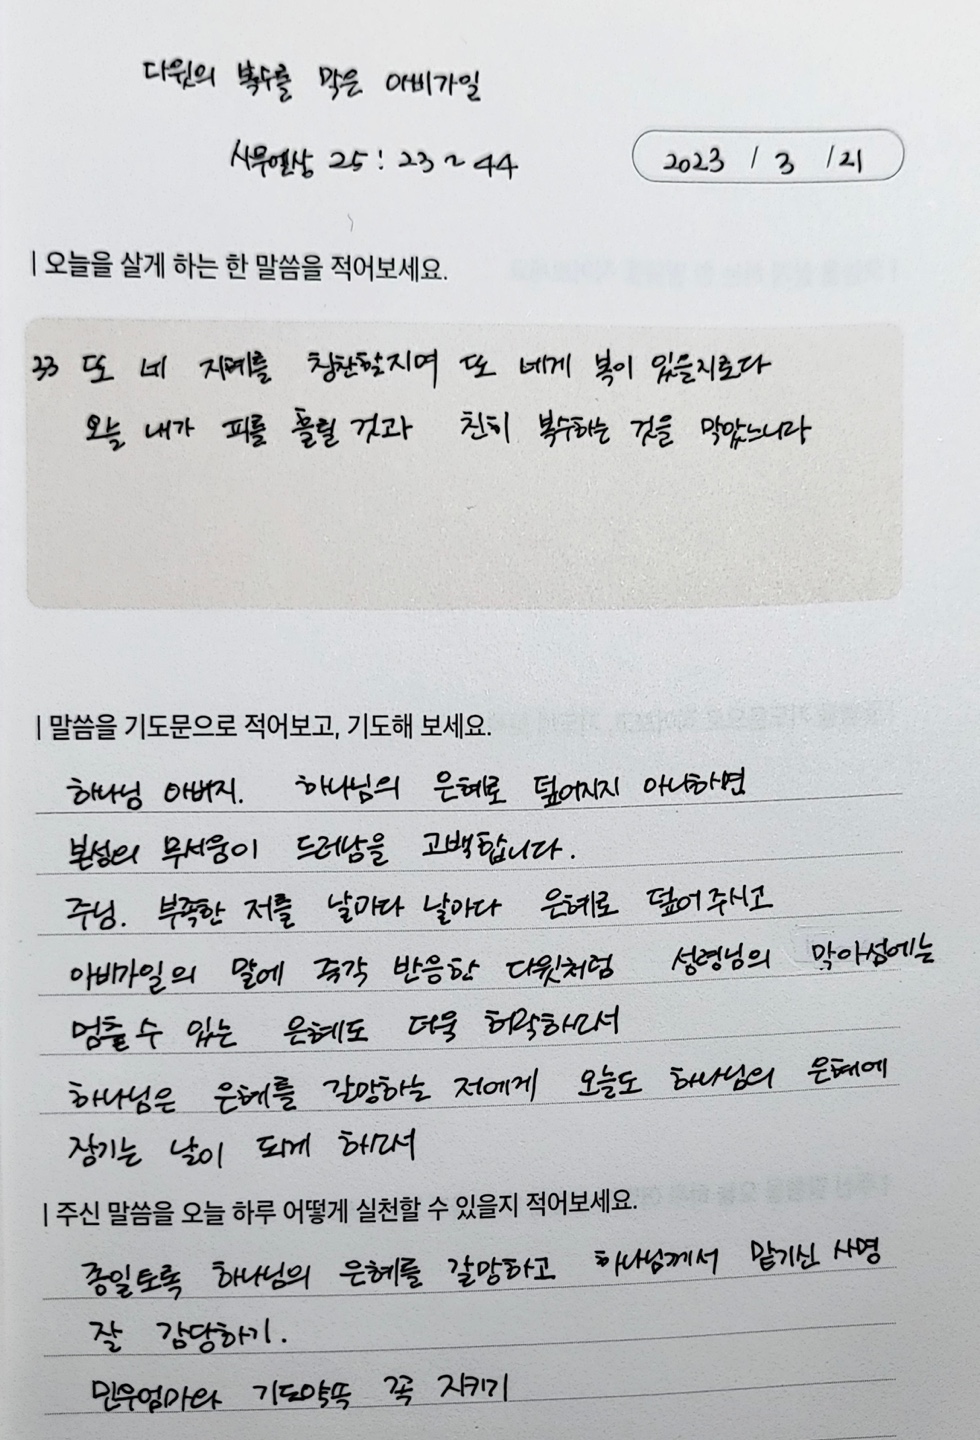 다윗의 복수를 막은 아비가일
사무엘상 25:23~44
2023 / 3 / 21
| 오늘을 살게 하는 한 말씀을 적어보세요.
33 또 네 지혜를 칭찬할지며 또 네게 복이 있을지로다
오늘 내가 피를 흘릴 것과 친히 복수하는 것을 막았느니라
| 말씀을 기도문으로 적어보고, 기도해 보세요.
하나님 아버지. 하나님의 은혜로 덮어지지 아니하면
본성의 무서움이 드러남을 고백합니다.
주님. 부족한 저를 날마다 날마다 은혜로 덮어 주시고
아비가일의 말에 즉각 반응한 다윗처럼 성령님의 막아섬에는
멈출 수 있는 은혜도 더욱 허락하소서
하나님은 은혜를 갈망하는 저에게 오늘도 하나님의 은혜에
잠기는 날이 되게 하소서
| 주신 말씀을 오늘 하루 어떻게 실천할 수 있을지 적어보세요.
종일토록 하나님의 은혜를 갈망하고 하나님께서 맡기신 사명
잘 감당하기.
민우엄마와 기도약속 꼭 지키기